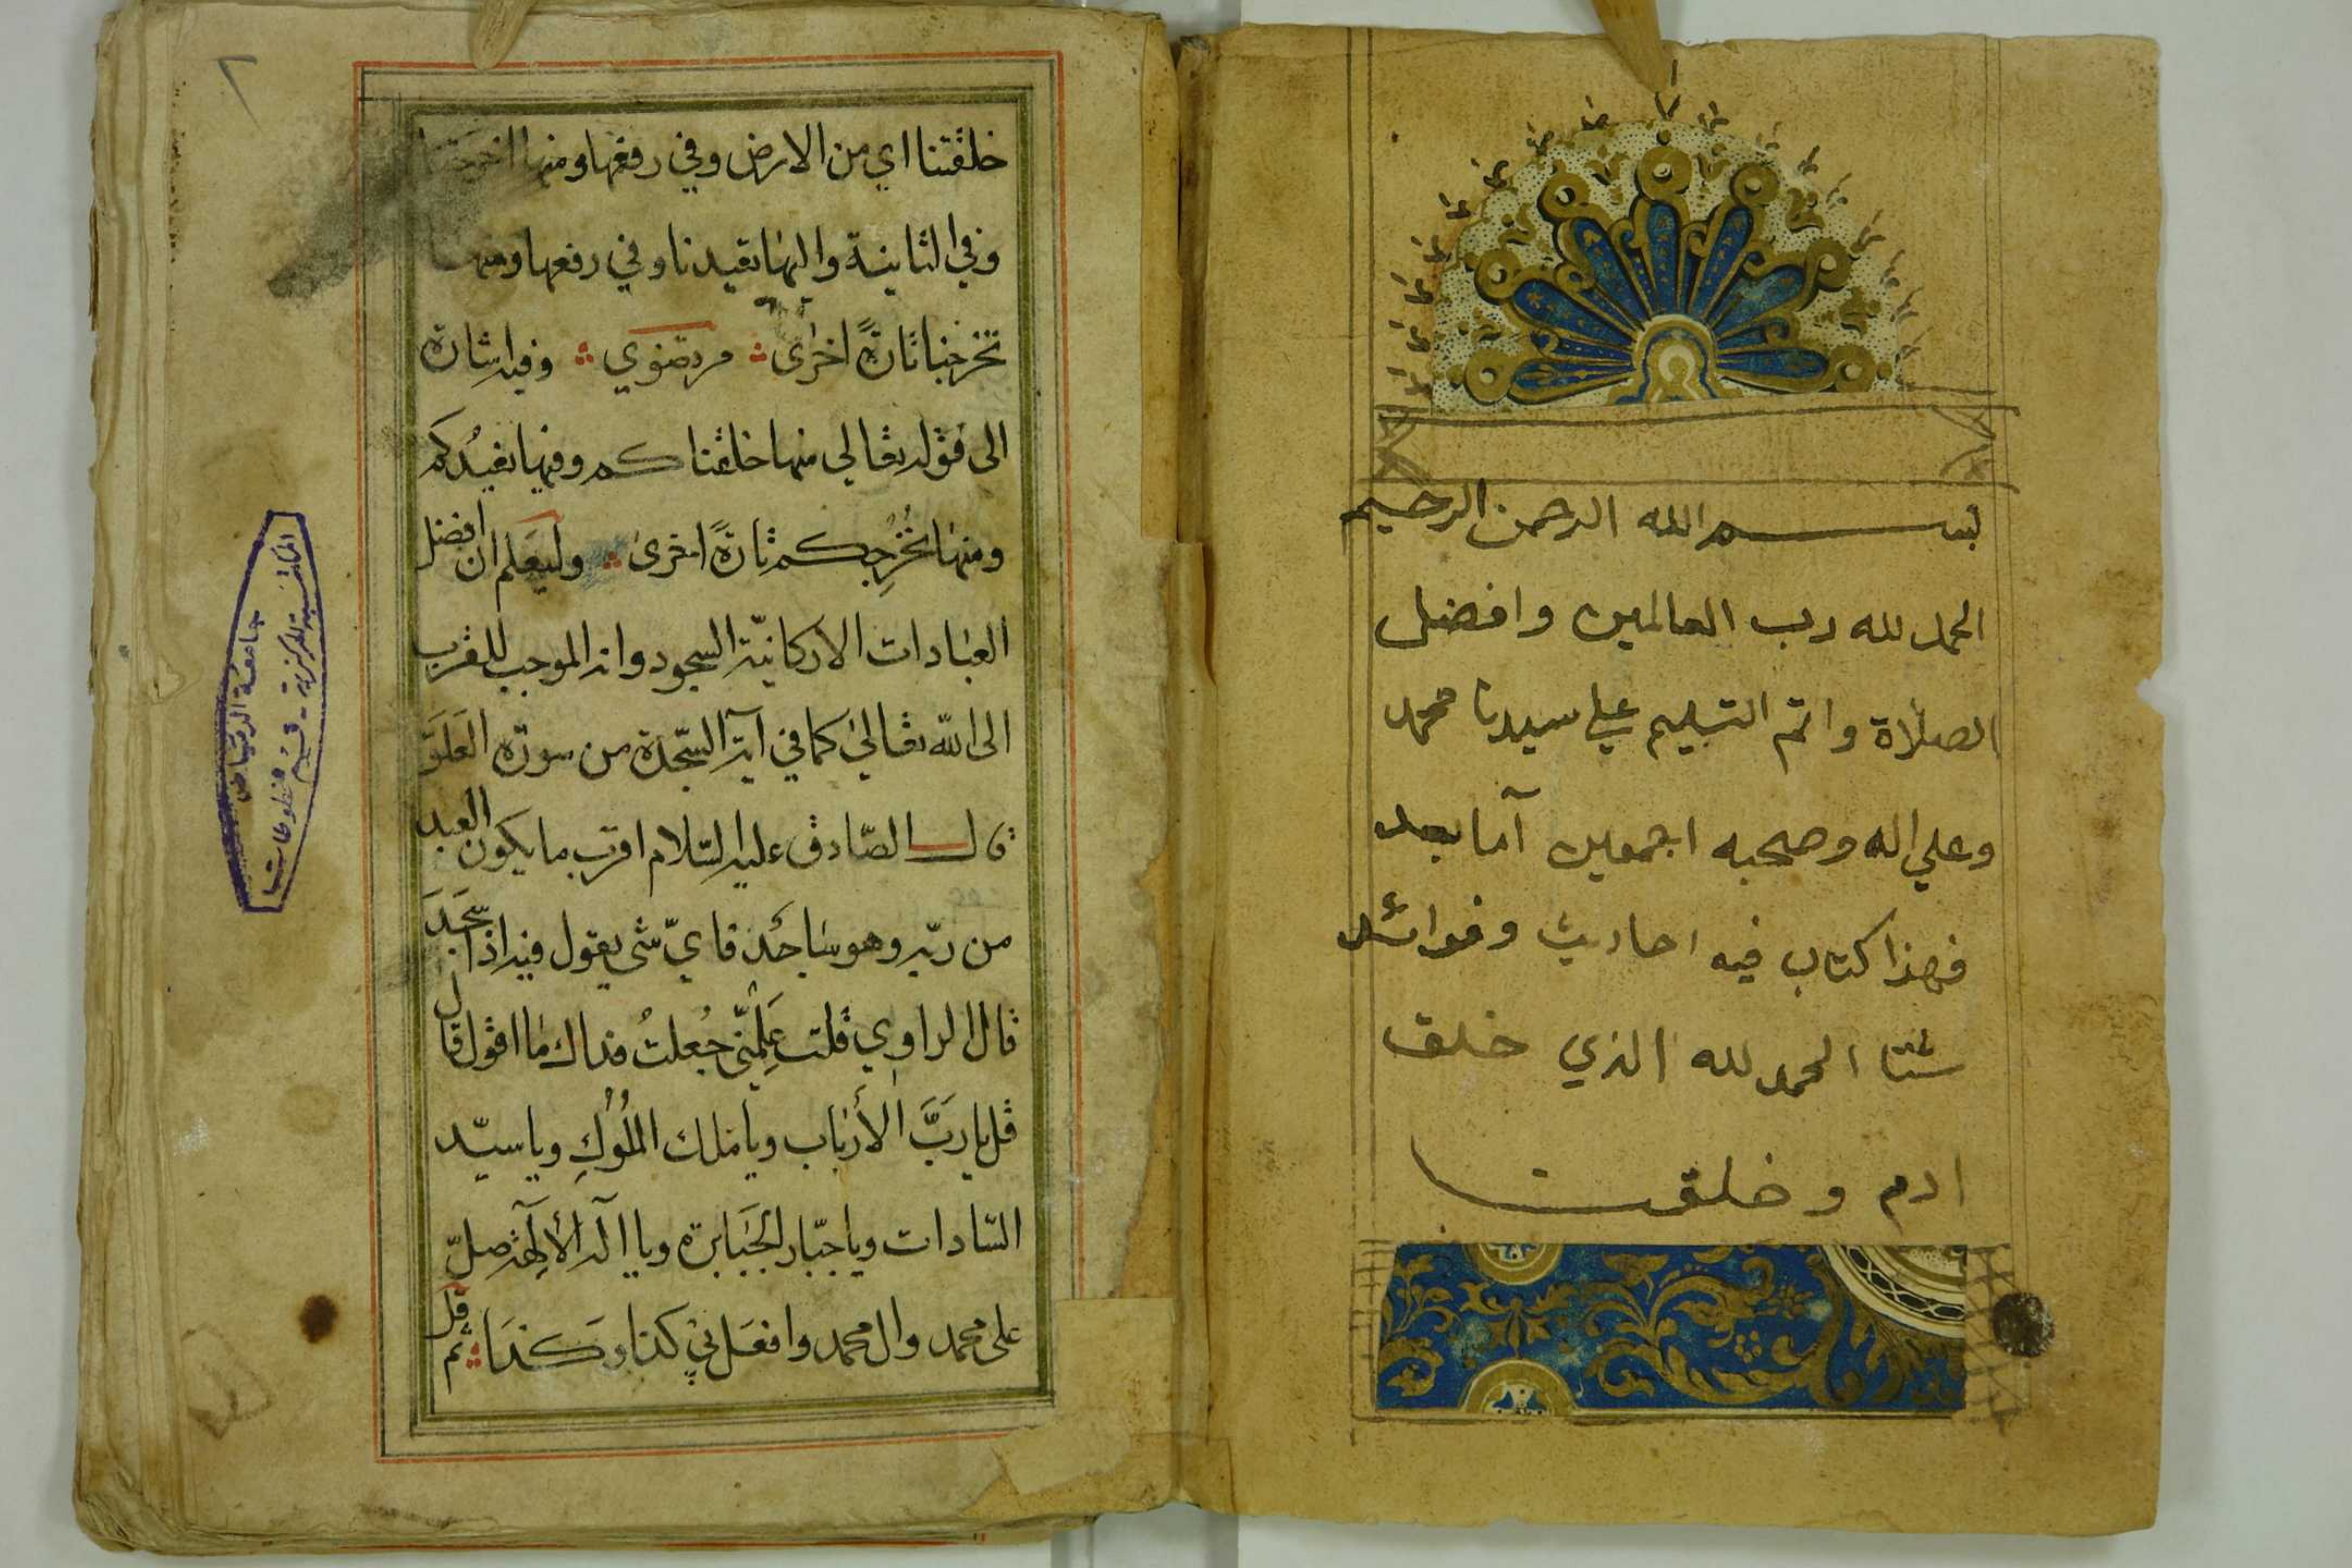 بسم الله الرحمن الرحيم
الحمد لله رب العالمين وافضل
الصلاة واتم التسليم علي سيدنا محمد
وعلي اله وصحبه اجمعين آما بعد
فهذا كتاب فيه احاديث وفوائد
شتا الحمد لله الذي خلق
ادم وخلقت
٢
خلقتنا اي من الارض وفي رفعها ومنها اخرجتنا
وفي الثانية واليها تعيدنا وفي رفعها ومنها
تخرجنا تارةً اخرى مرتضوي وفيه اشارة
الى قوله تعالي منها خلقناكم وفيها نعيدُكم
ومنها نُخْرِجُكم تارةً اخرى وليعلم ان افضل
العبادات الاركانيّة السجود وانه الموجب للقرب
الى الله تعالىٰ كما في آية السّجدة من سورة العَلَق
قال الصّادق عليه السّلام اقرب ما يكون العبد
من ربّه وهو ساجد فايّ شى يقول فيه اذا سَجَدَ
قال الراوي قلت عَلِّمْنّي جُعلتُ فداك ما اقول قال
قل يا ربَّ الأرباب ويا ملك المُلُوكِ ويا سيّد
السّادات ويا جبّار الجَبَابرة ويا اله الألِهة صلّ
على محمد وال محمد وافعَل بي كذا وَكَذَا ثم قل
جامعة الرياض
المكتبة المركزية - قسم مخطوطات